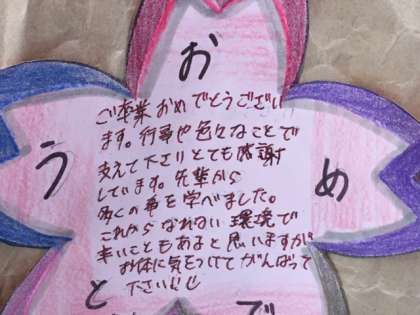 お
め
で
と
う
ご卒業おめでとうござい
ます。行事や色々なことで
支えて下さりとても感謝
しています。先輩から
多くの事を学べました。
これからなれない環境で
辛いこともあると思いますが
お体に気をつけてがんばって
下さい!!